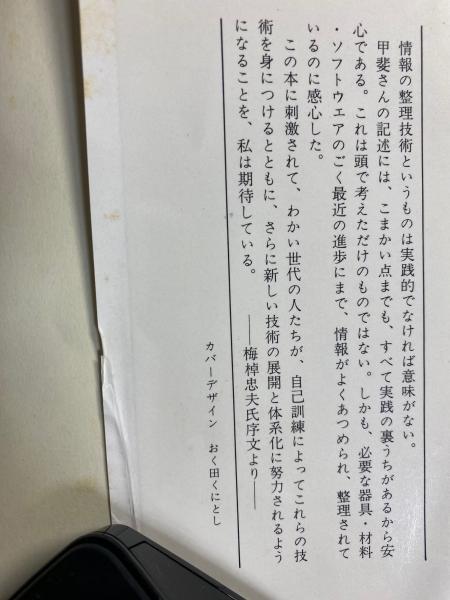 情報の整理技術というものは実践的でなければ意味がない。
甲斐さんの記述には、こまかい点までも、すべて実践の裏うちがあるから安
心である。これは頭で考えただけのものではない。しかも、必要な器具・材料
・ソフトウエアのごく最近の進歩にまで、情報がよくあつめられ、整理されて
いるのに感心した。
この本に刺激されて、わかい世代の人たちが、自己訓練によってこれらの技
術を身につけるとともに、さらに新しい技術の展開と体系化に努力されるよう
になることを、私は期待している。
――梅棹忠夫氏序文より――
カバーデザイン おく田くにとし